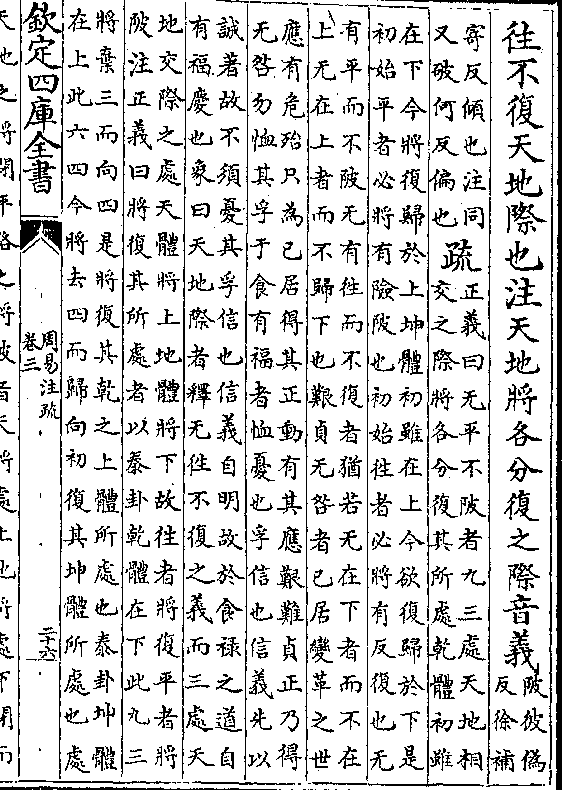 往不復天地際也注天地將各分復之際音義陂彼偽
反徐補
寄反傾也注同
又破何反偏也
疏
正義曰无平不陂者九三處天地相
交之際將各分復其所處乾體初雖
在下今將復歸於上坤體初雖在上今欲復歸於下是
初始平者必將有險陂也初始往者必將有反復也无
有平而不陂无有往而不復者猶若无在下者而不在
上无在上者而不歸下也艱貞无咎者已居變革之世
應有危殆只為已居得其正動有其應艱難貞正乃得
无咎勿恤其孚于食有福者恤憂也孚信也信義先以
誠著故不須憂其孚信也信義自明故於食祿之道自
有福慶也象曰天地際者釋无往不復之義而三處天
地交際之處天體將上地體將下故往者將復平者將
陂注正義曰將復其所處者以泰卦乾體在下此九三
將棄三而向四是將復其乾之上體所處也泰卦坤體
在上此六四今將去四而歸向初復其坤體所處也處
欽定四庫全書
周易注疏
卷三
二十六
天地之將閉平路之將陂者天將處上地將處下閉而